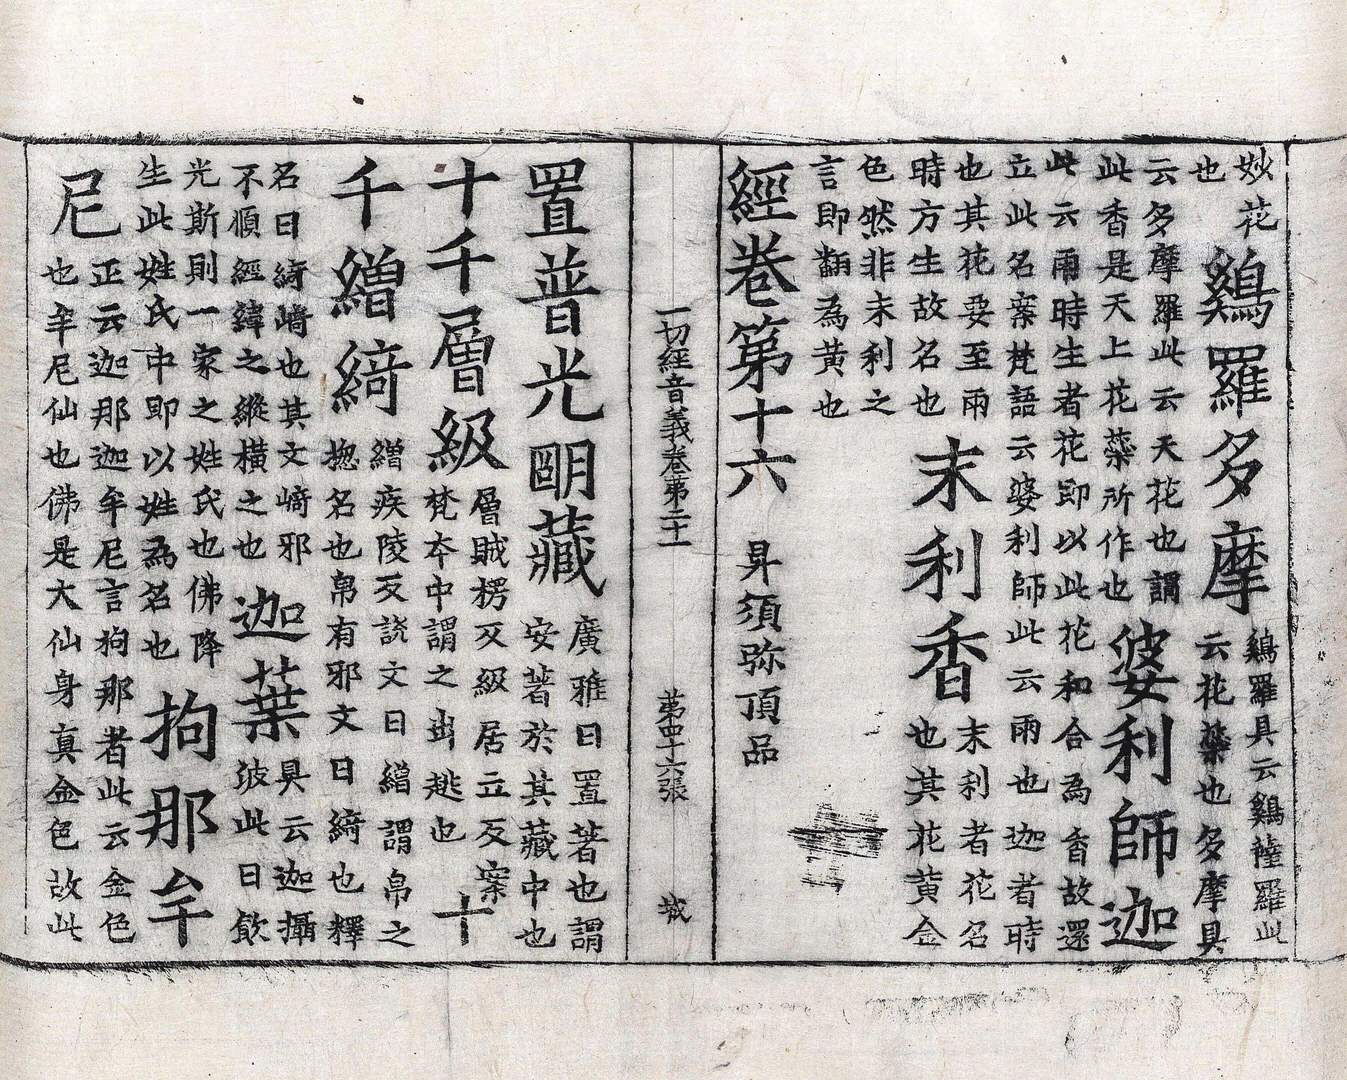 妙花
也
鷄羅多摩
鷄羅具云鷄薩羅此
云花蘂也多摩羅具
云多摩羅此云天花也謂
此香是天上花蘂所作也
婆利師迦
此云雨時生者花即以此花和合為香故還
立此名案梵語云婆利師此云雨也迦者時
也其花要至雨
時方生故名也
末利香
末利者花名
也其花黃金
色然非末利之
言即翻為黃也
經卷第十六 昇須弥頂品
一切經音義卷第二十一 第四十六張 城
置普光明藏
廣雅曰置著也謂
安著於其藏中也
十千層級
層賊楞反級居立反案
梵本中謂之出趒也
十
千繒綺
繒疾陵反說文曰繒謂帛之
揔名也帛有邪文曰綺也釋
名曰綺崎也其文崎邪
不順經緯之縱橫之也
迦葉
具云迦攝
波此曰飲
光斯則一家之姓氏也佛降
生此姓氏中即以姓為名也
拘那牟
尼
正云迦那迦牟尼言拘那者此云金色
也牟尼仙也佛是大仙身真金色故此